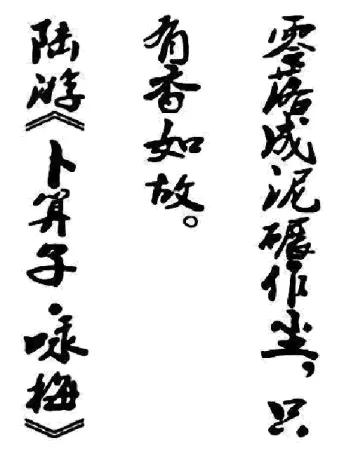 零落成泥碾作尘，只
有香如故。
陆游《卜算子·咏梅》